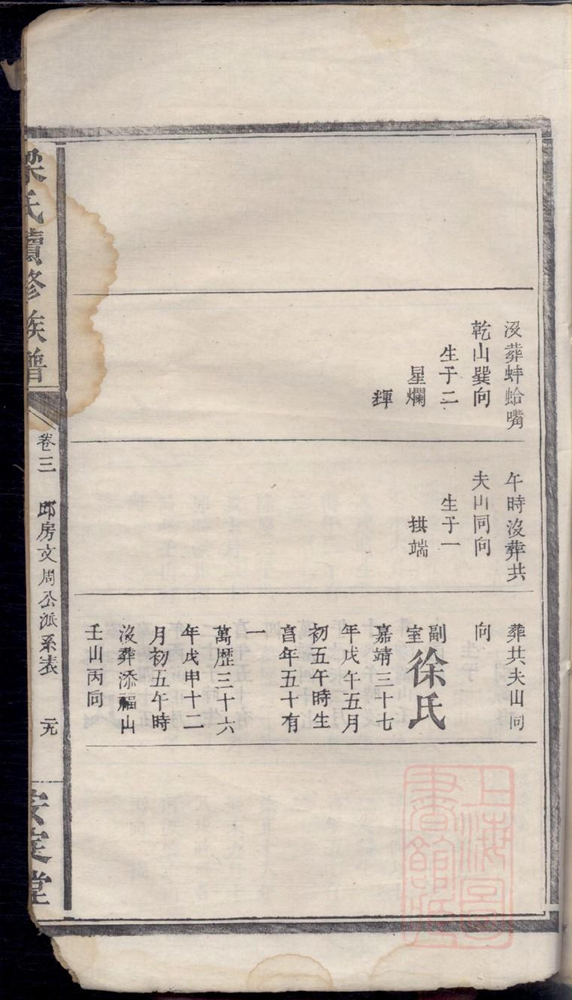 没葬蚌蛤嘴
乾山巽向
生于二
星爛
輝
午時沒葬共
夫山同向
生于一
拱端
葬共夫山同
向
副室徐氏
嘉靖三十七
年戊午五月
初五午時生
享年五十有
一
萬歷三十六
年戊申十二
月初五午時
沒葬添福山
壬山丙向
梁氏續修族譜
卷三
邱房文周公派系表
元
安定堂
上海圖書館藏